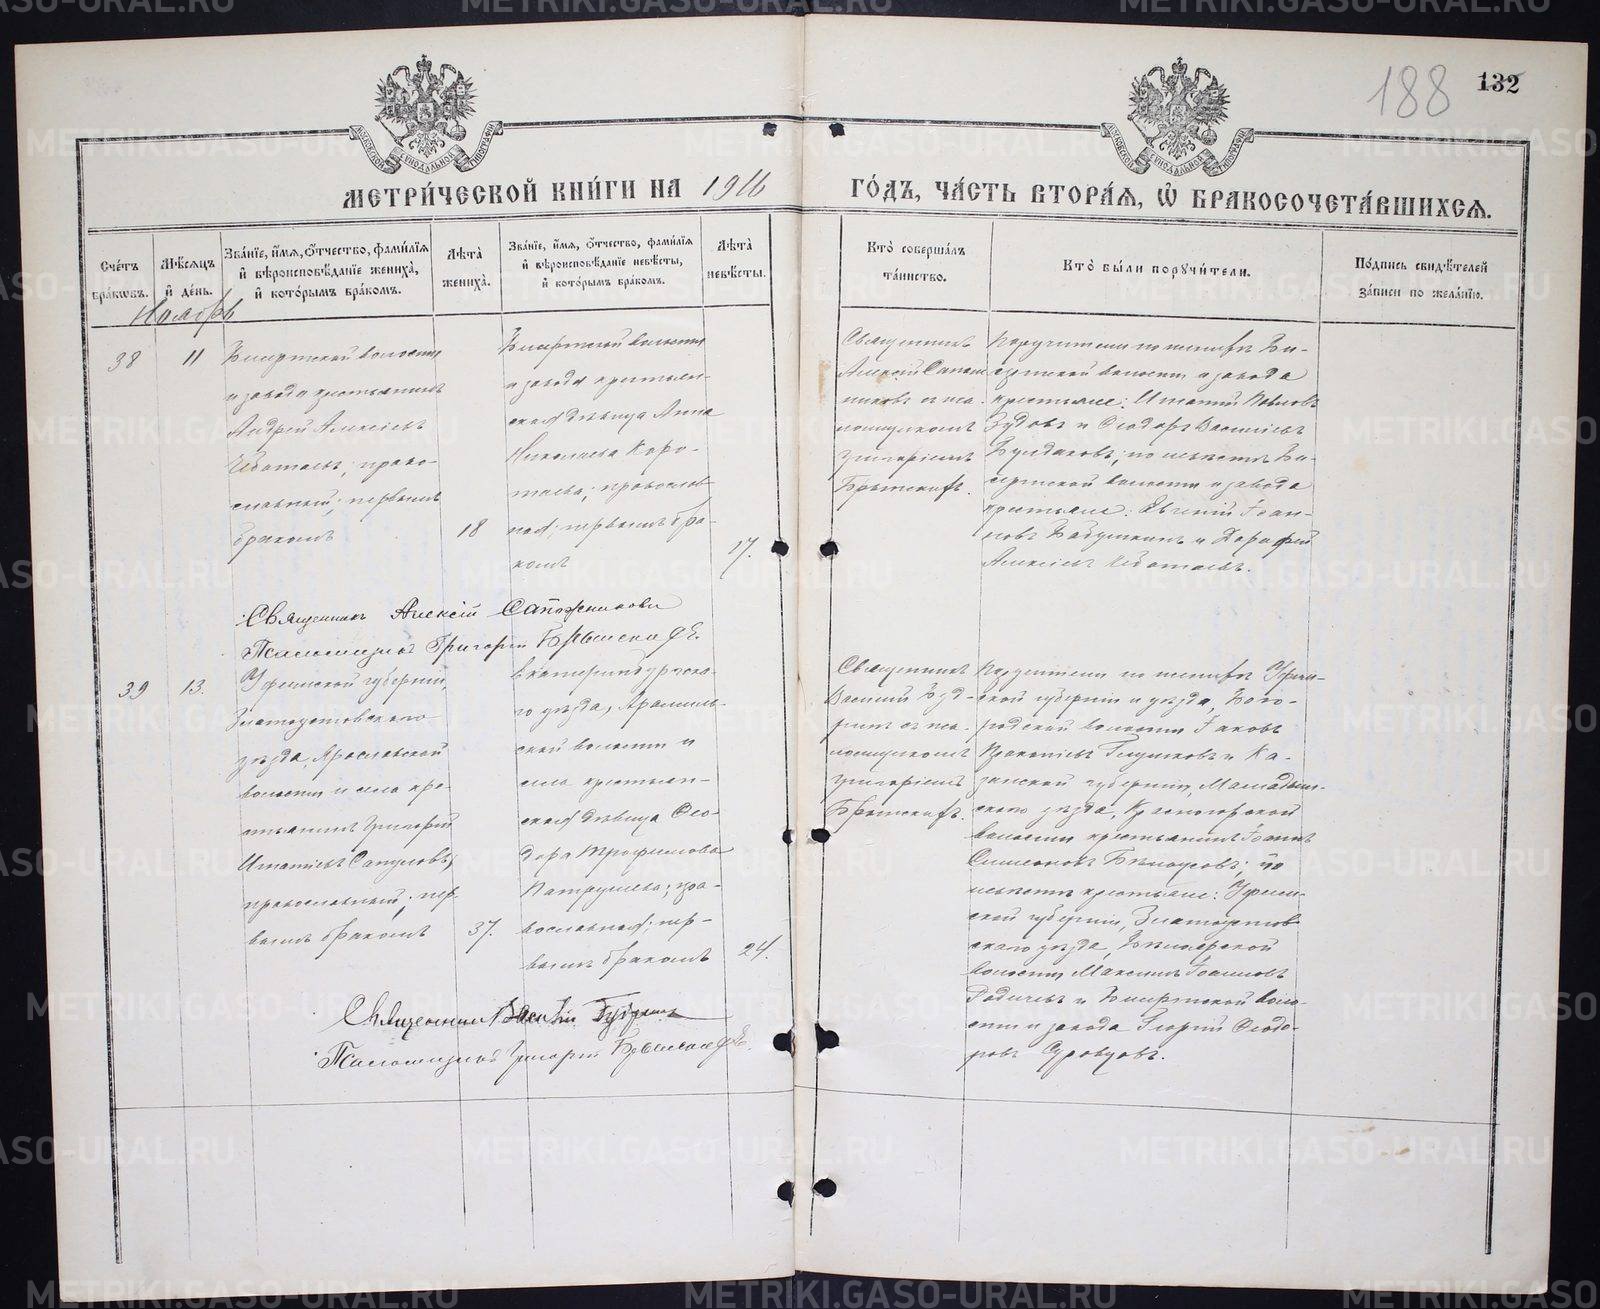 188 132
МОСКОВСКОЙ СѴНОДАЛЬНОЙ ТИПОГРАФІИ
МОСКОВСКОЙ СѴНОДАЛЬНОЙ ТИПОГРАФІИ
МЕТРИ́ЧЕСКОЙ КНИ́ГИ НА 1916
ГО́ДЪ, ЧА́СТЬ ВТОРА́Я, Ѡ҆ БРАКОСОЧЕТА́ВШИХСЯ.
Сче́тъ
бра́ковъ.
Мѣ́сяцъ
и҆ де́нь.
Зва́нїе, и҆́мя, ѻ҆́тчество, фами́лїя
и҆ вѣроисповѣ́данїе жениха̀,
и҆ кото́рымъ бра́комъ.
Лѣ́та
жениха̀.
Зва́нїе, и҆́мя, ѻ҆́тчество, фами́лїя
и҆ вѣроисповѣ́данїе невѣ́сты,
и҆ кото́рымъ бра́комъ.
Лѣ́та
невѣ́сты.
Кто̀ соверша́лъ
та́инство.
Кто̀ бы́ли порꙋчи́тели.
По́дпись свидѣ́телей
за́писи по жела́нїю.
Ноябрь
38
11
Бисертской волости
и завода крестьянинъ
Андрей Алексѣевъ
право-
славный; первымъ
бракомъ
18
Бисертской волости
и завода крестьян-
ская дѣвица Анна
Николаева Коро-
таева; православ-
ная; первымъ бра-
комъ
17.
Священникъ
Алексій Сапож-
никовъ съ пса-
ломщикомъ
Григоріемъ
Поручители по женихѣ Би-
сертской волости и завода
крестьяне: Игнатій Павловъ
Зудовъ и Ѳеодоръ Васильевъ
по невѣстѣ Би-
сертской волости и завода
крестьяне: Евгеній Іоан-
новъ Бабушкинъ и Дорофей
Алексѣевъ
Священникъ Алексій Сапожниковъ
Псаломщикъ Григорій
39
13.
Уфимской губерніи,
Златоустовскаго
уѣзда, Ярославской
волости и села кре-
стьянинъ Григорій
Игнатьевъ
православный; пер-
вымъ бракомъ
37.
Екатеринбургска-
го уѣзда, Арамиль-
ской волости и
села крестьян-
ская дѣвица Ѳео-
дора Трофимова
Патрушева; пра-
вославная; пер-
вымъ бракомъ
24.
Священникъ
Василій
съ пса-
ломщикомъ
Григоріемъ
Поручители по женихѣ Уфим-
ской губерніи и уѣзда, Бого-
родской волости Іаковъ
Прокопьевъ Глушковъ и Ка-
занской губерніи, Мамадыш-
скаго уѣзда, Красногорской
волости крестьянинъ Іоаннъ
Симеоновъ Бѣлоусовъ; по
невѣстѣ крестьяне: Уфим-
ской губерніи, Златоустов-
скаго уѣзда,
волости Максимъ Іоанновъ
и Бисертской воло-
сти и завода Георгій Ѳеодо-
ровъ Суровцовъ.
Священникъ Василій
Псаломщикъ Григорій